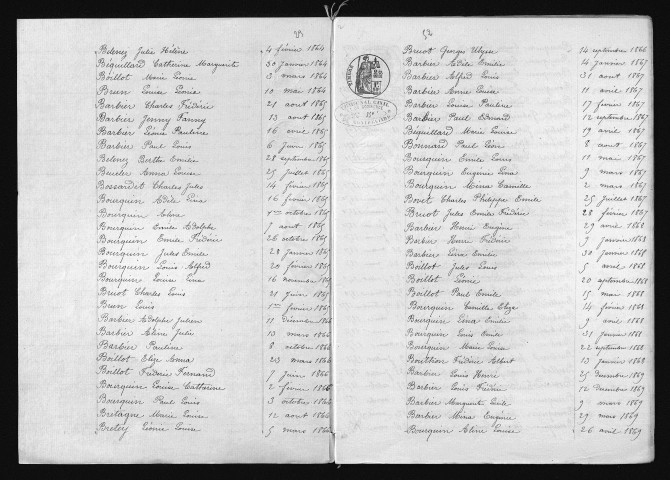 Belenez Julie Hélène 4 février 1864
Béguillard Catherine Marguerite 30 Janvier 1864
Boillot Marie Léonie 3 mars 1864
Brun Louise Léonie 10 mai 1864
Barbier Charles Frédéric 21 août 1865
Barbier Jenny Fanny 13 août 1865
Barbier Léonie Pauline 16 avril 1865
Barbier Paul Louis 6 Juin 1865
Belenez Bertha Emilie 28 septembre 1865
Beucler Anna Louise 25 Juillet 1865
Bossardet Charles Jules 14 février 1865
Bourquin Adèle Lina 16 février 1865
Bourquin Alina 1er octobre 1865
Bourquin Emile Adolphe 7 août 1865
Bourquin Emile Frédéric 26 octobre 1865
Bourquin Jules Emile 28 Janvier 1865
Bourquin Louis Alfred 20 février 1865
Bourquin Louise Lina 16 novembre 1865
Bruot Charles Louis 21 Juin 1865
Brun Louis 1er février 1865
Barbier Adolphe Julien 17 Décembre 1866
Barbier Aline Julie 13 mars 1866
Barbier Pauline 8 octobre 1866
Boillot Elize Anna 23 mars 1866
Boillot Frédéric Fernand 7 Juin 1866
Bourquin Louise Catherine 2 février 1866
Bourquin Paul Louis 3 octobre 1866
Bretagne Marie Louise 12 août 1866
Bretey Léonie Louise 5 mars 1866
52
Bruot Georges Ulysse 14 septembre 1866
Barbier Adèle Emilie 14 Janvier 1867
Barbier Alfred Louis 31 août 1867
Barbier Anne Louise 11 avril 1867
Barbier Louise Pauline 17 février 1867
Barbier Paul Edouard 12 septembre 1867
Béguillard Marie Louise 19 avril 1867
Bonnard Paul Léon 8 août 1867
Bourquin Emile Louis 11 mai 1867
Bourquin Eugénie Lina 9 mars 1867
Bourquin Lina Camille 2 mars 1867
Bovet Charles Philippe Emile 25 Juillet 1867
Bruot Jules Emile Frédéric 28 février 1867
Barbier Henri Eugène 29 avril 1868
Barbier Henri Frédéric 9 Janvier 1868
Barbier Léna Emilie 30 Janvier 1868
Boillot Jules Louis 5 avril 1868
Boillot Léonie 20 septembre 1868
Boillot Paul Emile 15 mai 1868
Bourquin Camille Elize 14 février 1868
Bourquin Lina Emilie 9 avril 1868
Bourquin Louis Emile 31 Janvier 1868
Bourquin Marie Louise 22 septembre 1868
Bouthion Frédéric Albert 13 Janvier 1868
Barbier Louis Henri 25 Décembre 1869
Barbier Louis Frédéric 12 Décembre 1869
Barbier Marguerite Cécile 9 mars 1869
Barbier Mina Eugénie 29 mars 1869
Bourquin Aline Louise 26 avril 1869